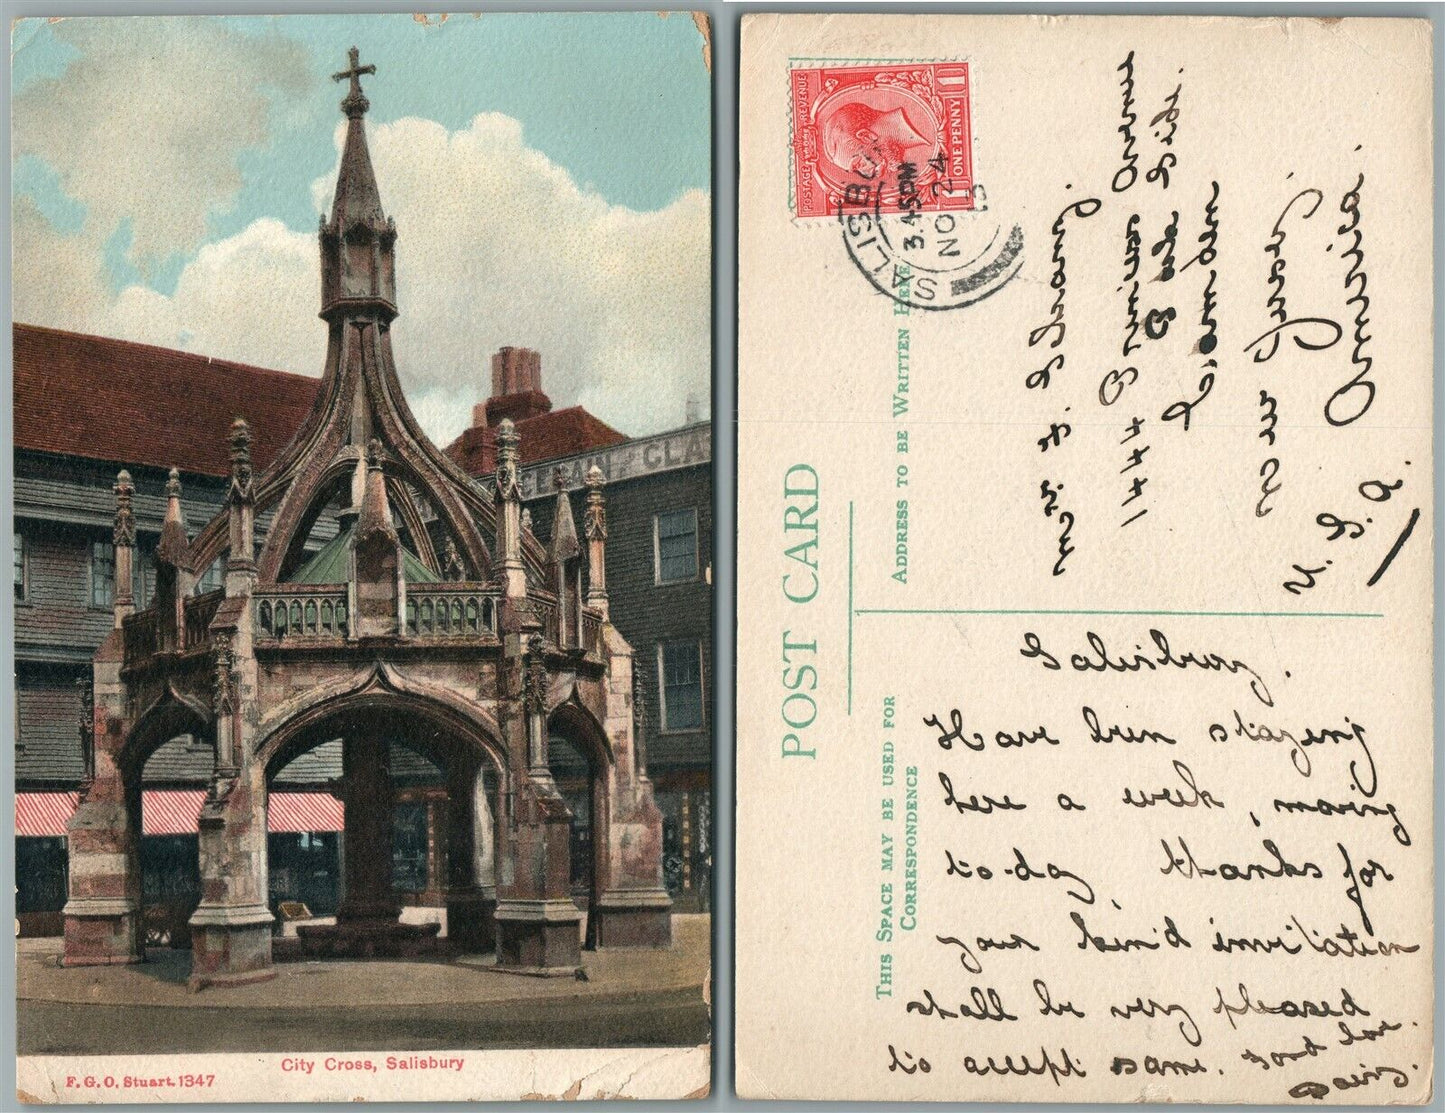 CLA
City Cross, Salisbury
F. G. O. Stuart. 1347
POST CARD
THIS SPACE MAY BE USED FOR
CORRESPONDENCE
ADDRESS TO BE WRITTEN HERE
POSTAGE REVENUE
ONE PENNY
1 1
SALISBU
3.45PM
NO 24
13
Mr. F.
1444 Avenue
Side.
Camden
New Jersey
U. S. A. America.
Salisbury.
Have been staying
here a week, moving
to-day thanks for
your kind invitation
shall be very pleased
to accept same. Fond love.